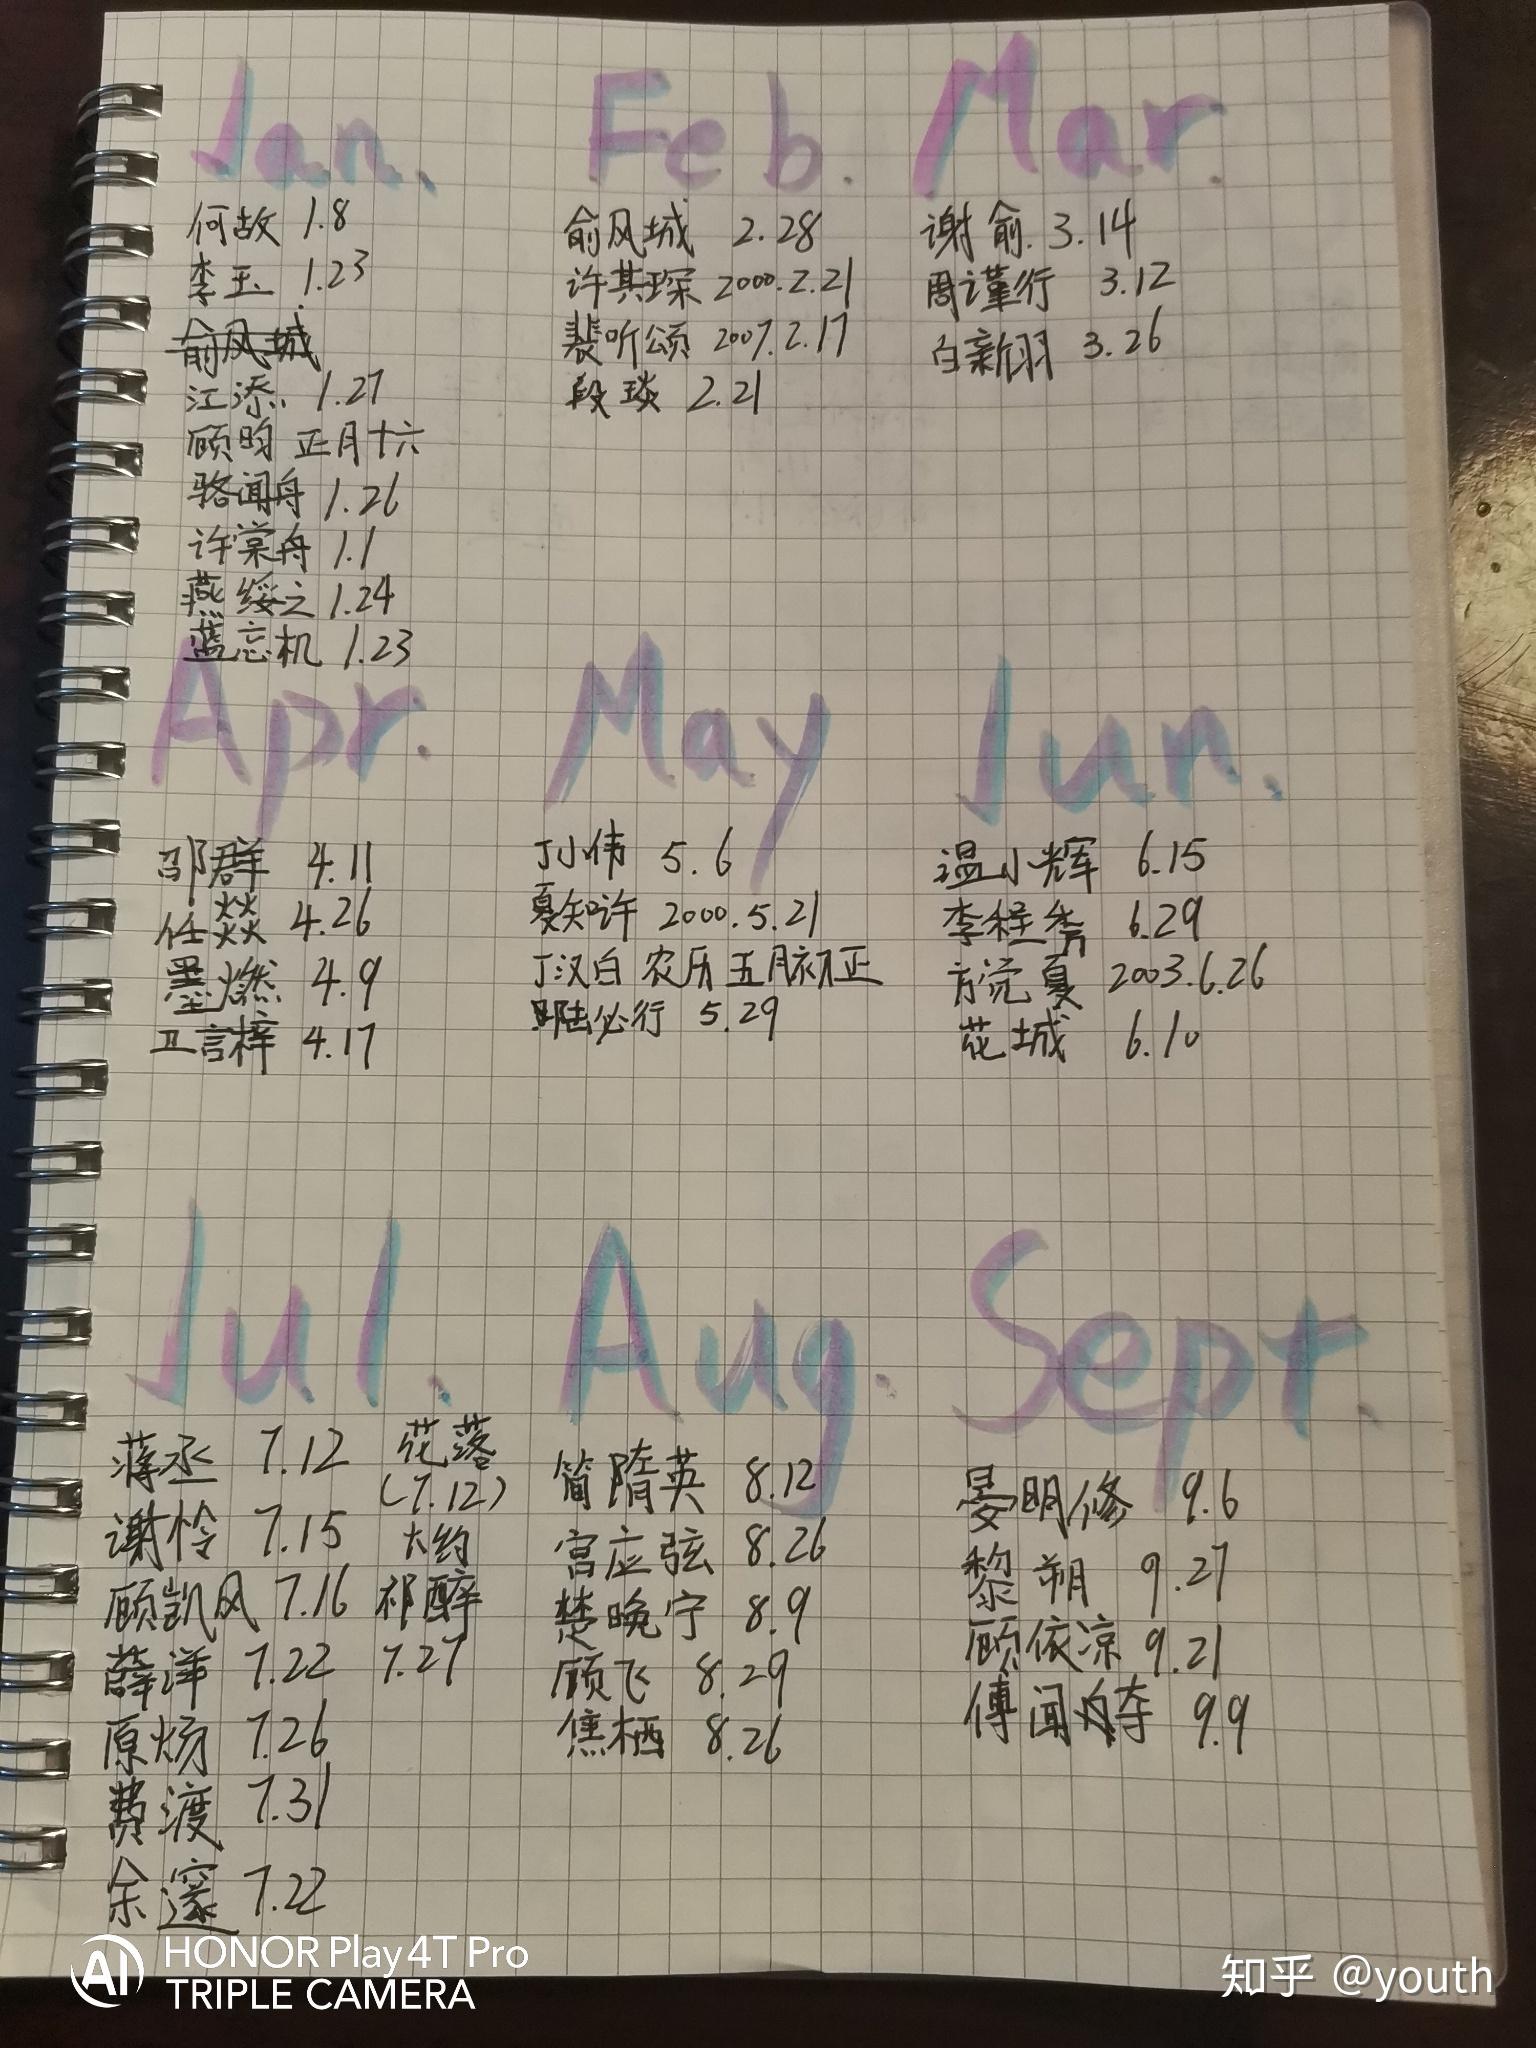 Jan.
何故 1.8
李玉 1.23
俞风城
江添 1.27
顾昀 正月十六
骆闻舟 1.26
许棠舟 1.1
燕绥之 1.24
蓝忘机 1.23
Feb.
俞风城 2.28
许其琛 2000.2.21
裴听颂 2007.2.17
段琰 2.21
Mar.
谢俞 3.14
周谨行 3.12
白新羽 3.26
Apr.
邵群 4.11
任燚 4.26
墨燃 4.9
卫言梓 4.17
May
丁小伟 5.6
夏知许 2000.5.21
丁汉白 农历五月初五
陆必行 5.29
Jun.
温小辉 6.15
李程秀 6.29
方觉夏 2003.6.26
花城 6.10
Jul.
蒋丞 7.12
谢怜 7.15
顾凯风 7.16
薛洋 7.22
原炀 7.26
费渡 7.31
余邃 7.22
花落
(7.12)
大约
祁醉
7.27
Aug.
简隋英 8.12
宫应弦 8.26
楚晚宁 8.9
顾飞 8.29
焦栖 8.26
Sept.
晏明修 9.6
黎朔 9.27
顾依凉 9.21
傅闻夺 9.9
AI HONOR Play 4T Pro
TRIPLE CAMERA
知乎 @youth